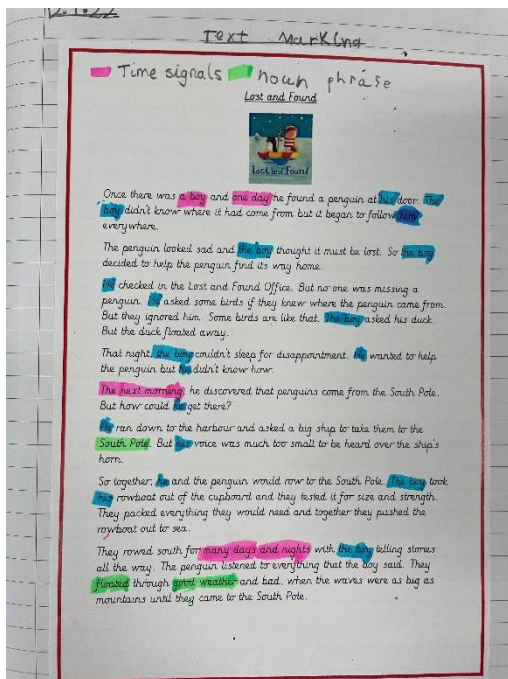 Text Marking
Time signals noun phrase
Lost and Found
Lost and Found
Once there was a boy and one day he found a penguin at his door. The
boy didn't know where it had come from but it began to follow him
everywhere.
The penguin looked sad and the boy thought it must be lost. So the boy
decided to help the penguin find its way home.
He checked in the Lost and Found Office. But no one was missing a
penguin. He asked some birds if they knew where the penguin came from.
But they ignored him. Some birds are like that. The boy asked his duck.
But the duck floated away.
That night, the boy couldn't sleep for disappointment. He wanted to help
the penguin but he didn't know how.
The next morning, he discovered that penguins come from the South Pole.
But how could he get there?
He ran down to the harbour and asked a big ship to take them to the
South Pole. But his voice was much too small to be heard over the ship's
horn.
So together, he and the penguin would row to the South Pole. The boy took
his rowboat out of the cupboard and they tested it for size and strength.
They packed everything they would need and together they pushed the
rowboat out to sea.
They rowed south for many days and nights with the boy telling stories
all the way. The penguin listened to everything that the boy said. They
floated through good weather and bad, when the waves were as big as
mountains until they came to the South Pole.